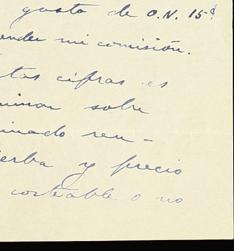 gasto de O.N. 15¢
ender mi comisión.
tas cifras es
minar sobre
minado ren-
ierba y precio
costeable o no